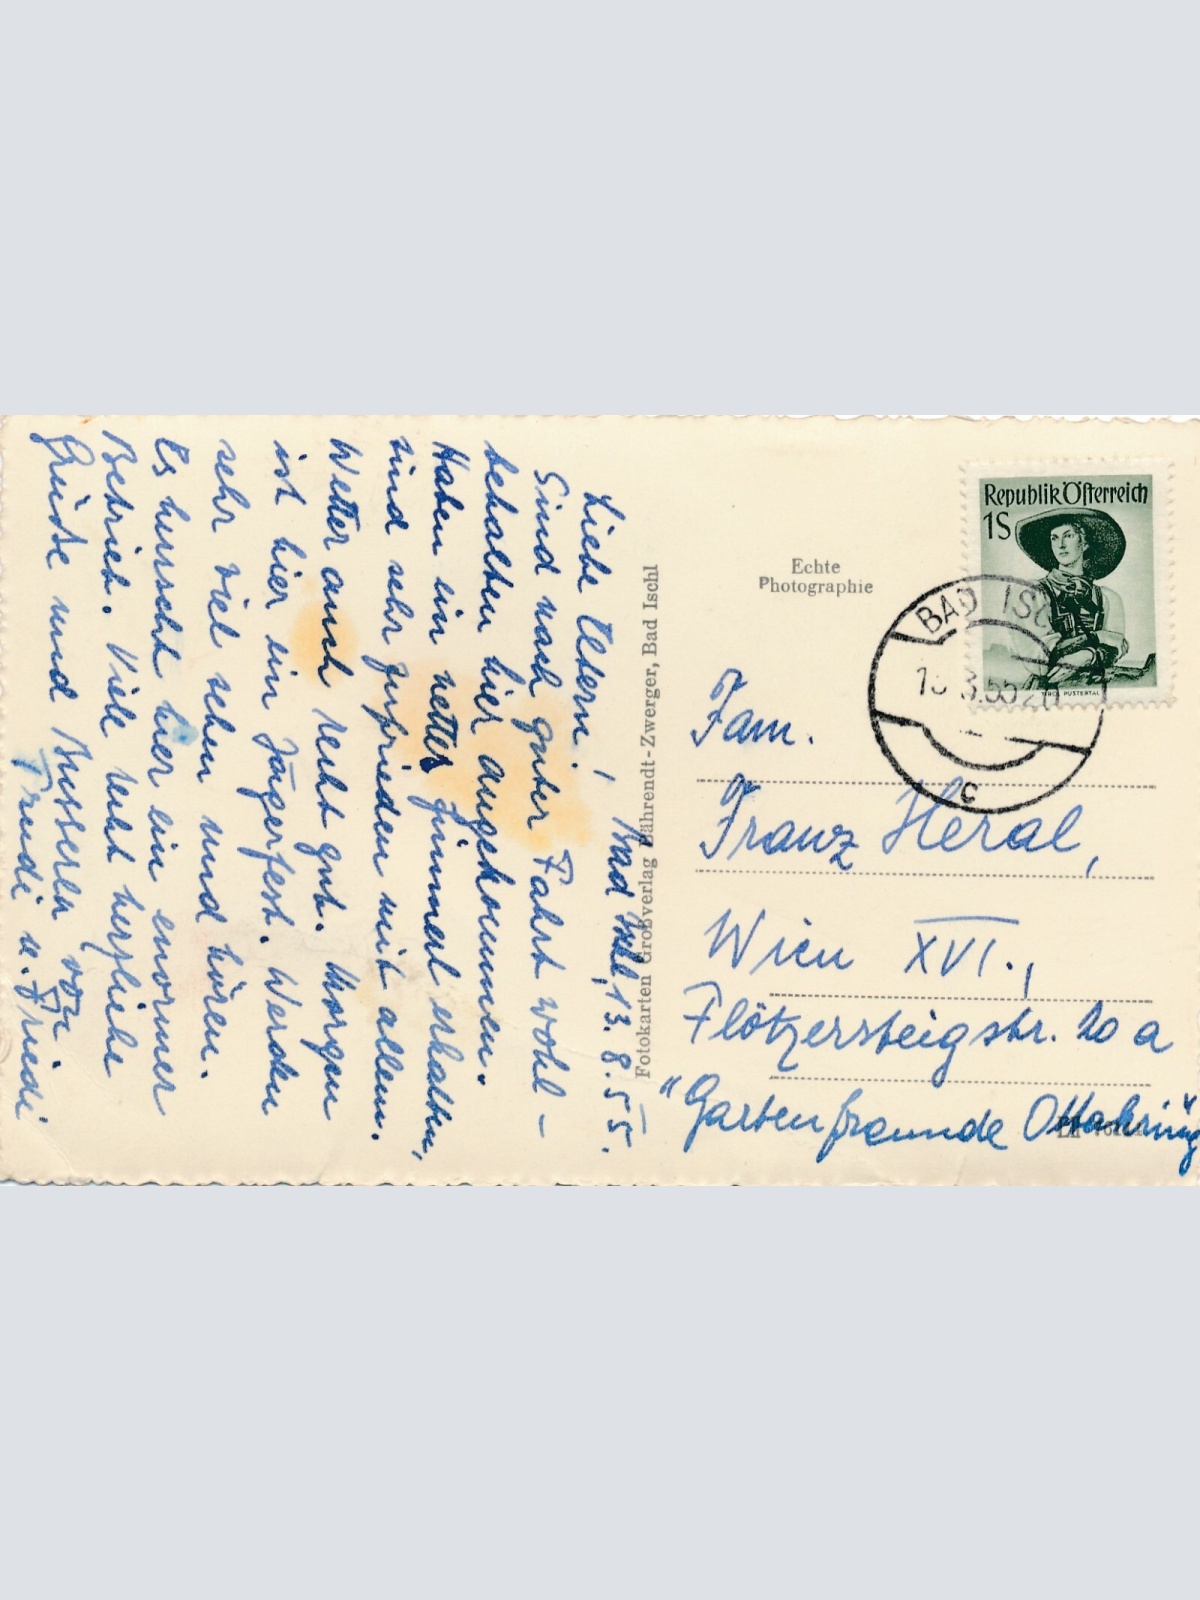 Bad Ischl, 13. 8. 55.
Liebe Eltern!
Sind nach guter Fahrt wohl-
behalten hier angekommen.
Haben ein nettes Zimmerl erhalten,
sind sehr zufrieden mit allem.
Wetter auch recht gut. Morgen
ist hier ein Jägerfest. Werden
sehr viel sehen und hören.
Es herrscht hier ein enormer
Betrieb. Viele recht herzliche
Grüße und Busserln von
Trudi u. Friedi
Fotokarten Großverlag Bährendt-Zwerger, Bad Ischl
Echte
Photographie
Republik Österreich
1S
TIROL PUSTERTAL
BAD ISC
C
Fam.
Franz Heral,
Wien XVI.,
Flötzersteigstr. 20 a
"Gartenfreunde Ottakring"